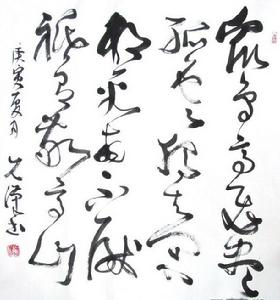 众鸟高飞尽
孤云独去闲
相看两不厌
祇有敬亭山
庚寅夏月